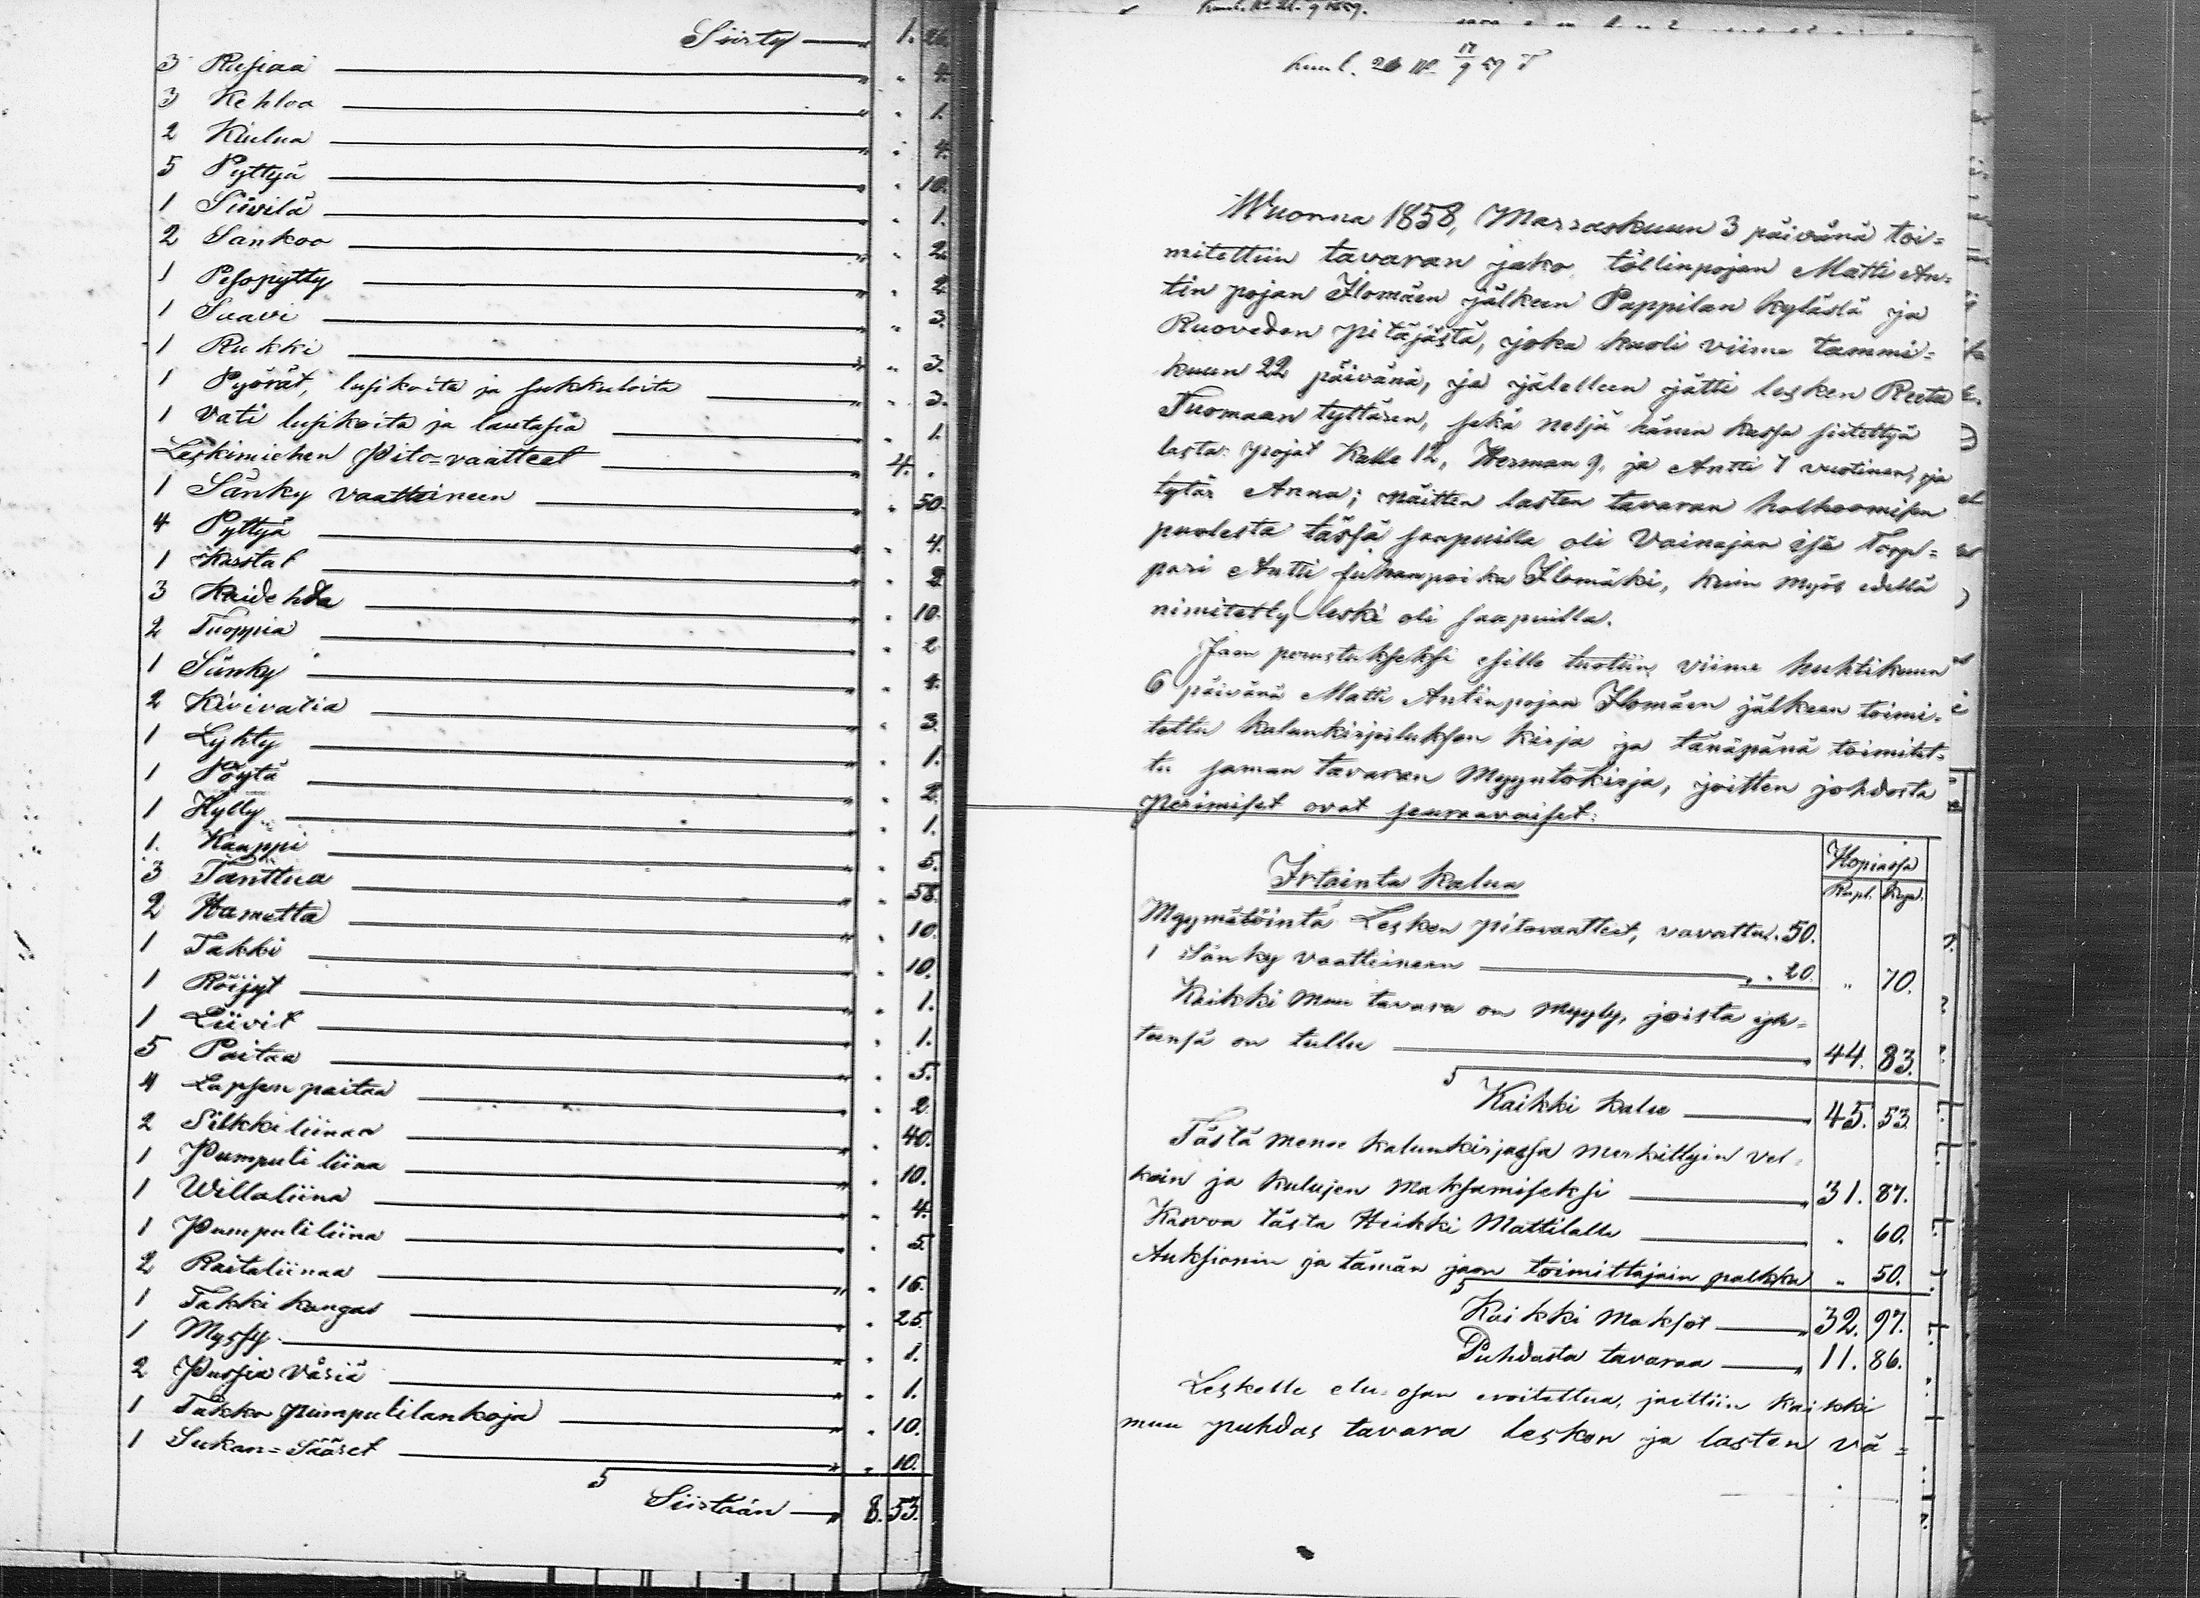 Siirty — " 1. 26.
3 Rusiaa — " " 4.
3 Kehloa — " " 1.
2 Kiulua — " " 4.
5 Pyttyä — " " 10.
1 Siivilä — " " 1.
2 Sankoo — " " 2.
1 Pesopytty — " " 2.
1 Saavi — " " 3.
1 Rukki — " " 3.
1 Pyörät, lusikoita ja sukkuloita — " " 3.
1 Vati lusikoita ja lautasia — " " 1.
Leskimiehen Pito-vaatteet — " 4. "
1 Sänky vaatteineen — " " 50.
4 Pyttyä — " " 4.
1 Karstat — " " 2
3 Kaidehda — " " 10.
2 Tuoppia — " " 2
1 Sänky — " " 4.
2 Kivivatia — " " 3.
1 Lyhty — " " 1.
1 Pöytä — " " 2.
1 Hylly — " " 1.
1. Kaappi — " " 5.
3 Tanttua — " " 58.
2 Hametta — " " 10.
1 Takki — " " 10.
1 Röijyt — " " 1.
1 Liivit — " " 1.
5 Paitaa — " " 5.
4 Lapsen paitaa — " " 2
2 Silkkiliinaa — " " 40.
1 Pumpuli liina — " " 10.
1 Willaliina — " " 4.
1 Pumpuliliina — " " 5
2 Raitaliinaa — " " 16.
1 Takki kangas — " " 25
1 Myssy — " " 1.
2 Pussia väriä — " " 1.
1 Takko pumpulilankoja — " " 10.
1 Sukan-Sääret — " " 10.
Siirtään — " 8. 53.
Wuonna 1858, Marraskuun 3 päivänä toi-
mitettiin tavaran jako töllinpojan Matti An-
tin pojan Ilomäen jälkeen Pappilan kylästä ja
Ruoveden pitäjästä, joka kuoli viime tammi-
kuun 22 päivänä, ja jälelleen jätti lesken Reeta
Tuomaan tyttären, sekä neljä hänen kassa siitettyä
lasta: pojat Kalle 12, Herman 9, ja Antti 7 vuotinen, ja
tytär Anna; näitten lasten tavaran holhoomisen
puolesta tässä saapuilla oli Vainajan isä Torp-
pari Antti Juhanpoika Ilomäki, kuin myös edellä
nimitetty leski oli saapuilla.
Jaon perustukseksi esille tuotiin viime huhtikuun
6 päivänä Matti Antinpojan Ilomäen jälkeen toimi-
tettu kalunkirjoituksen kirja ja tänäpänä toimitet-
tu saman tavaran Myyntökirja, joitten johdosta
perimiset ovat seuraavaiset:
Hopiassa
Irtainta kalua Rupl. Kop.
Myymätöintä Lesken pitovaatteet, vavattu. 50.
1 Sänky vaatteineen — " " 20. " 70.
Kaikki muu tavara on myyty, joista yh-
teensä on tullu — " 44. 83.
Kaikki kalu — " 45. 53.
Tästä menee kalunkirjassa merkittyin vel-
kain ja kulujen maksamiseksi — " 31. 87.
Kasvoa tästä Heikki Mattilalle — " " 60.
Auksionin ja tämän jaon toimittajain palkka " 50.
Kaikki maksot — " 32. 97.
Puhdasta tavaraa — " 11. 86.
Leskelle etu-osan eroitettua, jaettiin kaikki
muu puhdas tavara lesken ja lasten vä-